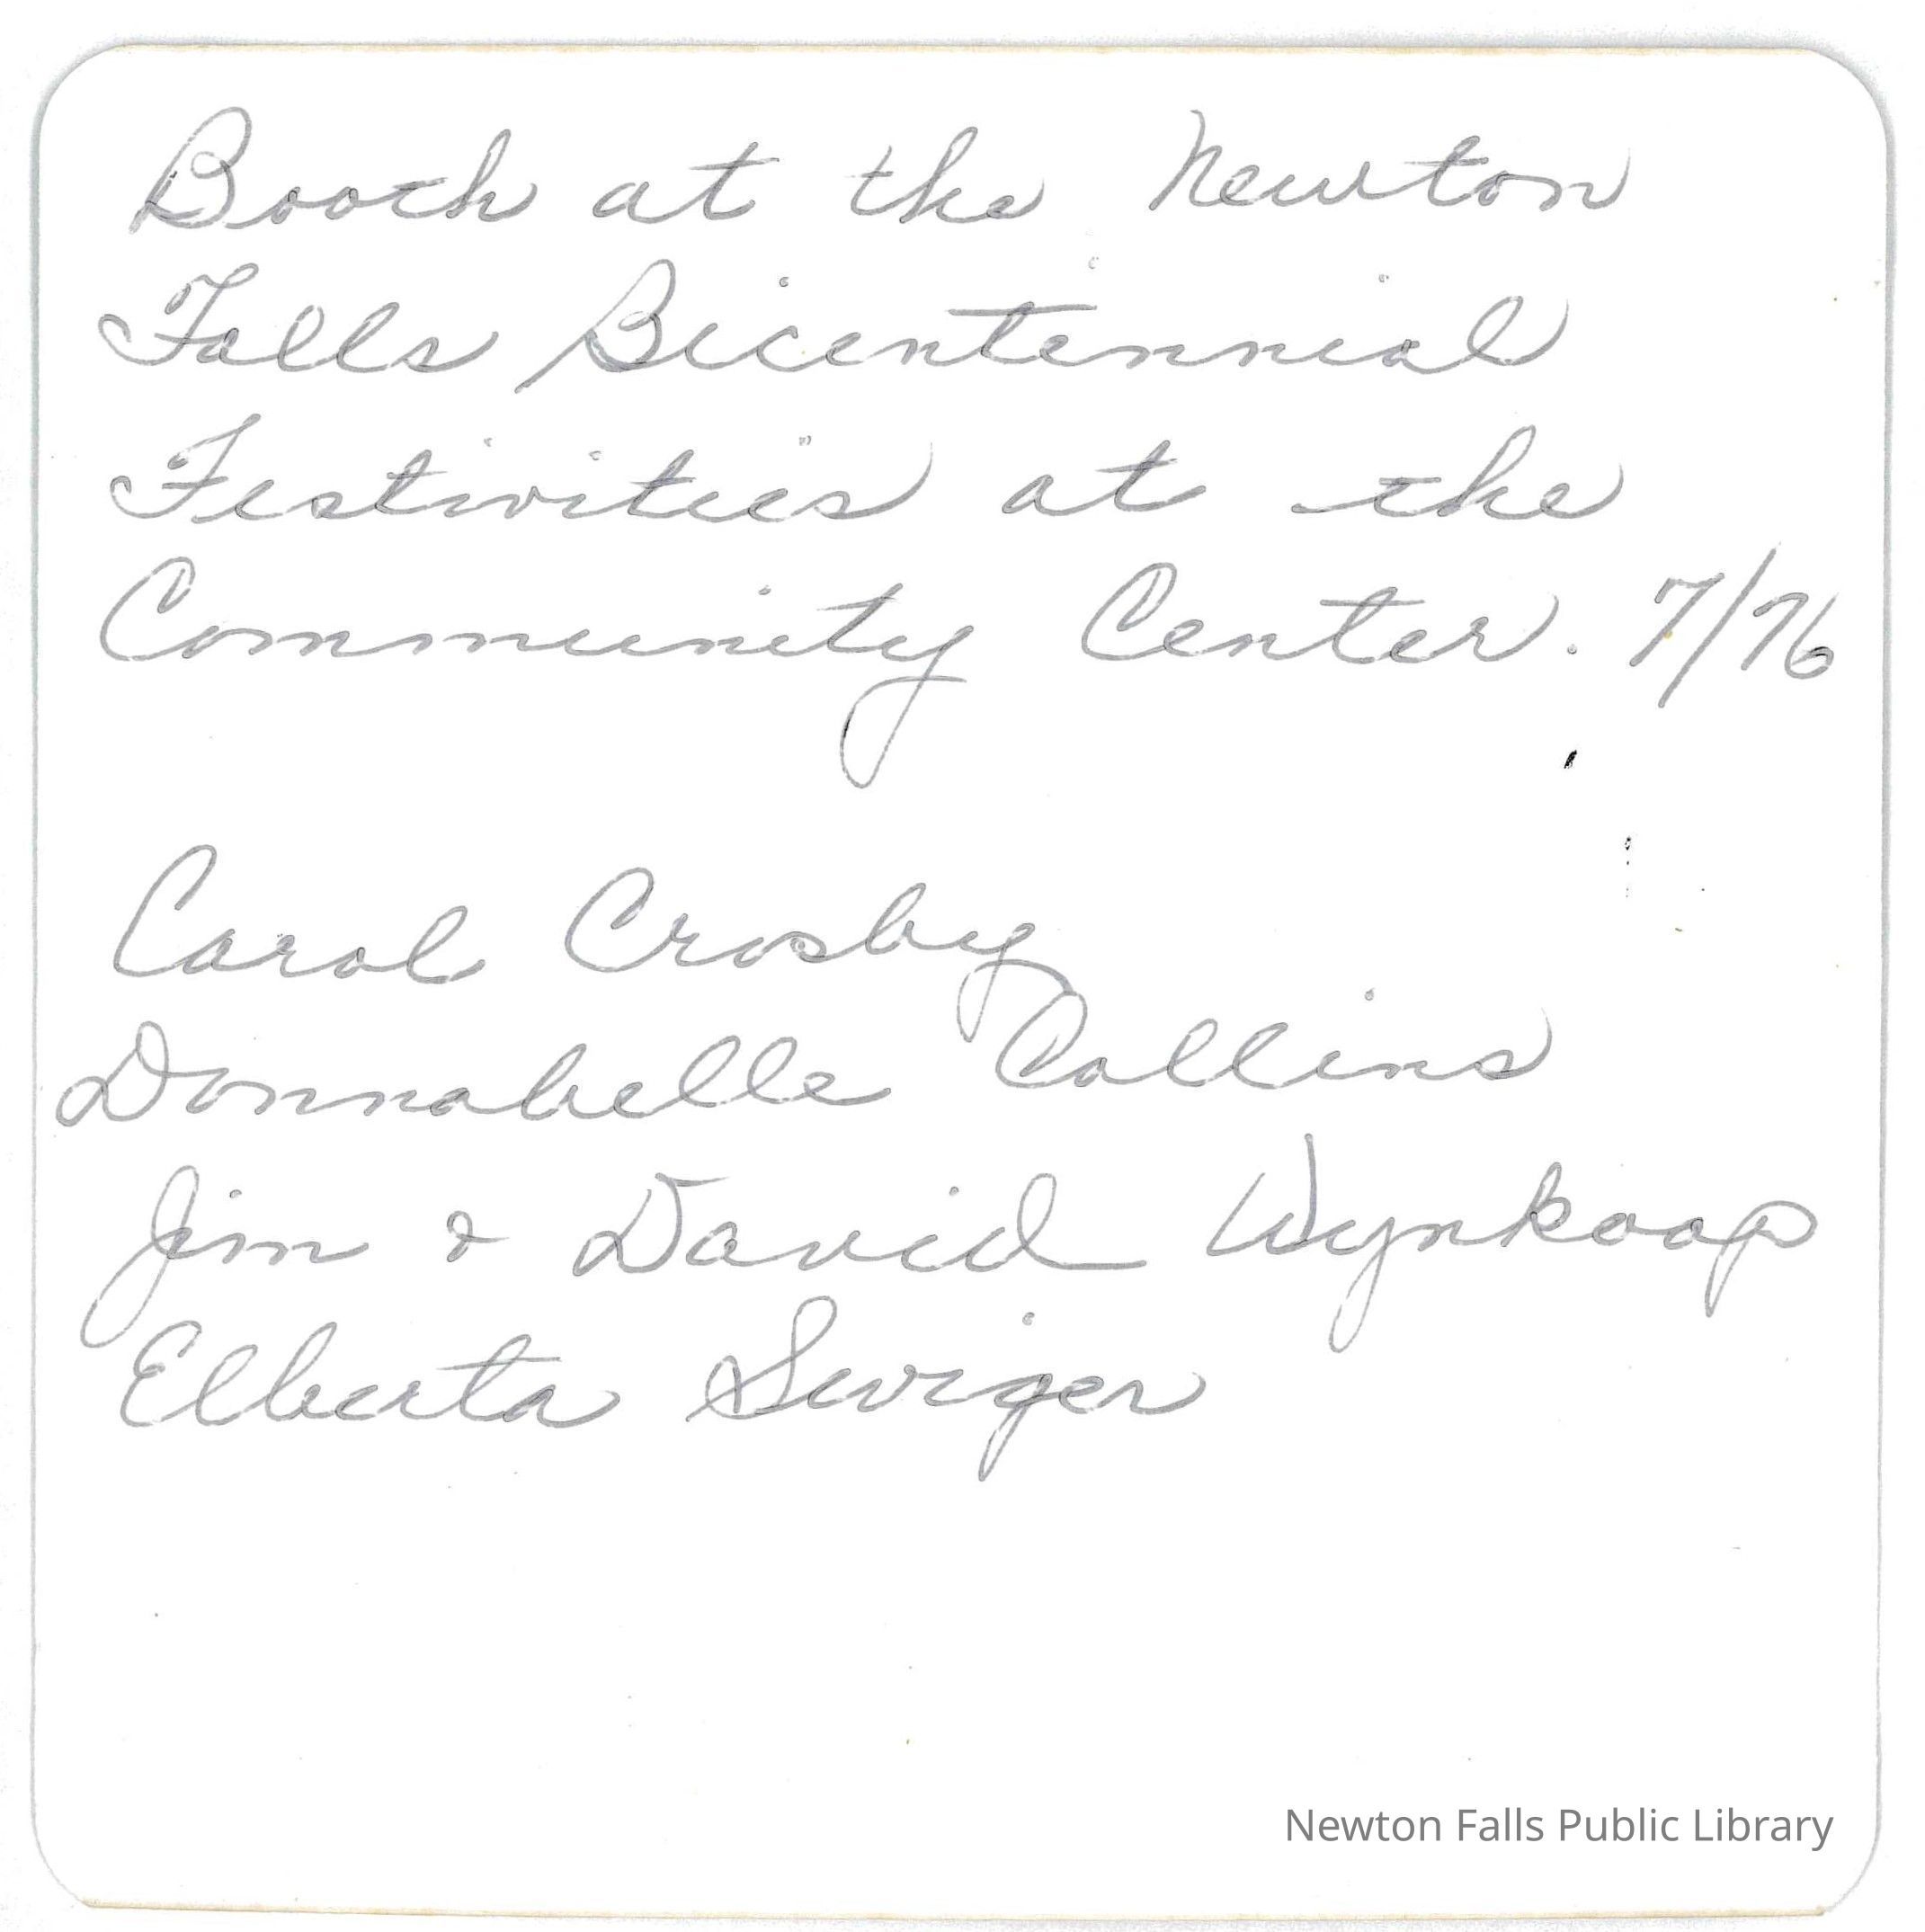 Booth at the Newton
Falls Bicentennial
Festivities at the
Community Center. 7/76
Carol Crosby
Donnabelle Collins
Jim & David Wynkoop
Elberta Swiger
Newton Falls Public Library